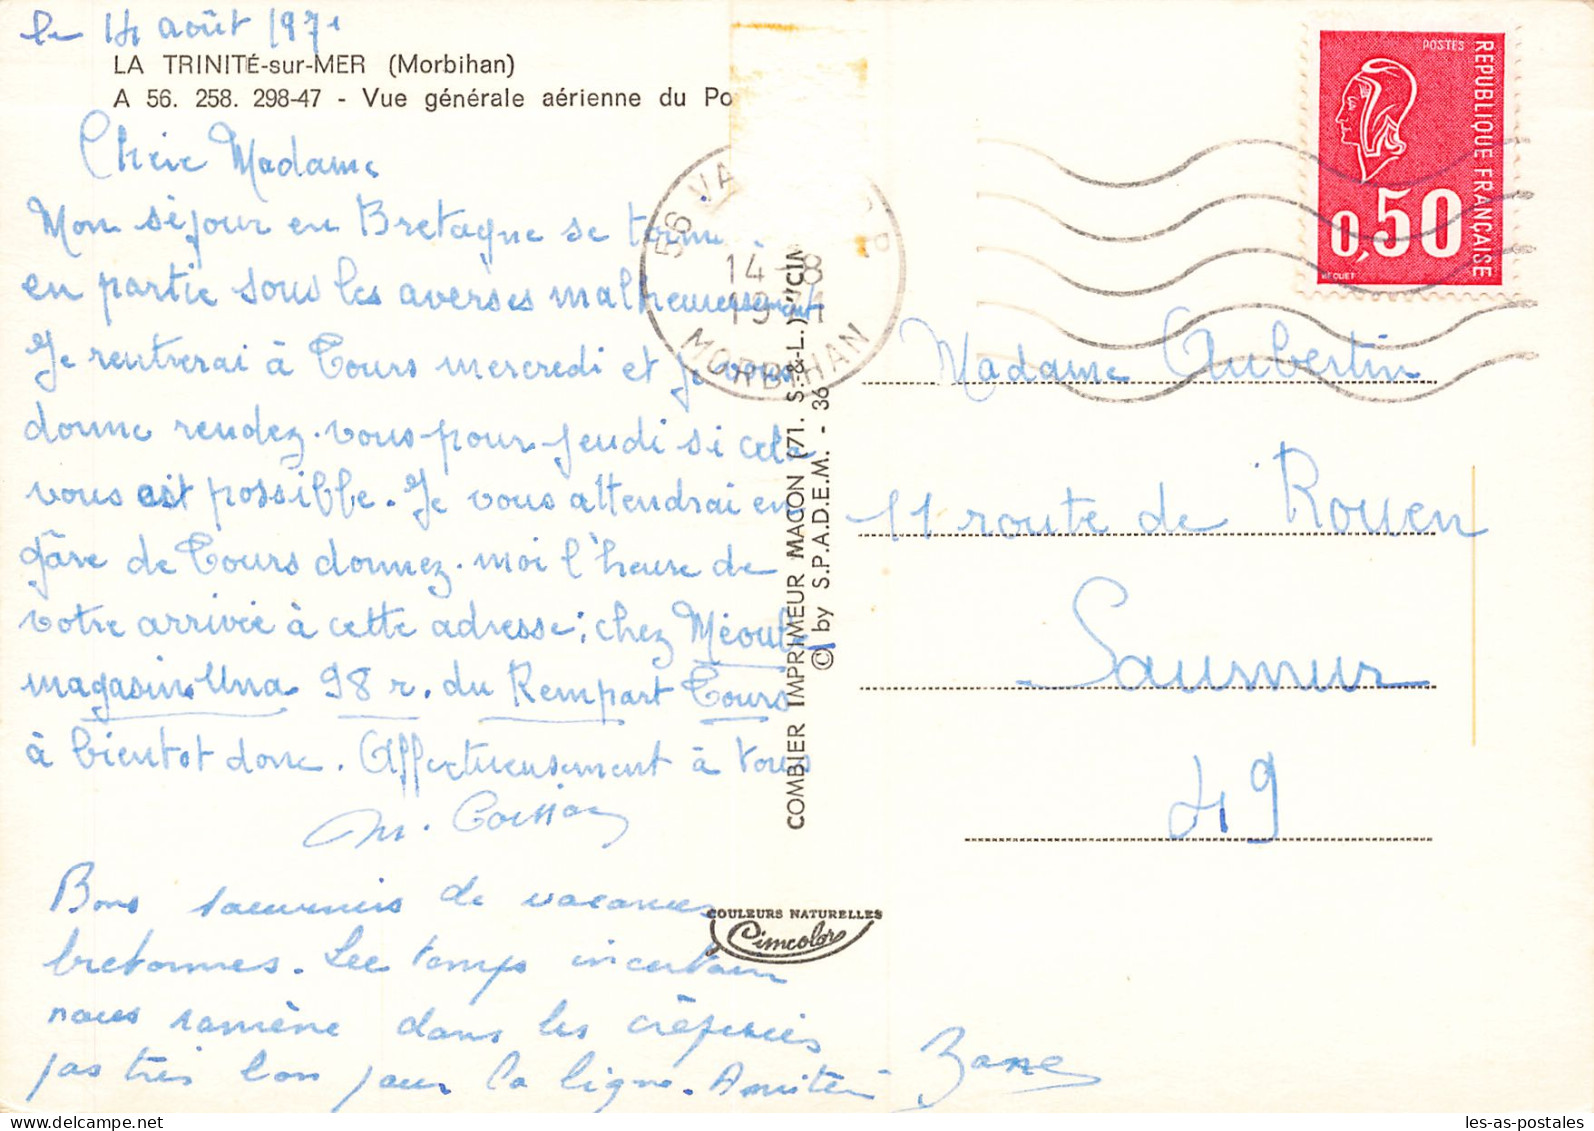 le 14 août 1971
LA TRINITÉ-sur-MER (Morbihan)
A 56. 258. 298-47 - Vue générale aérienne du Po
Chère Madame
Mon séjour en Bretagne se termine
en partie sous les averses malheureusement
Je rentrerai à Tours mercredi et je vous
donne rendez-vous pour jeudi si cela
vous est possible. Je vous attendrai en
gâre de Tours donnez-moi l'heure de
votre arrivée à cette adresse: chez
magasin Una 98 r. du Rempart Tours
à bientot donc. Affectueusement à vous
Bons souvenirs de vacances
bretonnes. Le temps incertain
nous ramène dans les crêperies
pas très bon pour la ligne. Amitiés
56 VA
14-8
1971
MORBIHAN
POSTES
REPUBLIQUE FRANÇAISE
0,50
BEQUET
Madame Aubertin
11 route de Rouen
Saumur
49
COMBIER IMPRIMEUR MACON (71. S.-&-L.) "CIM
© by S.P.A.D.E.M. - 36
COULEURS NATURELLES
Cimcolor
les-as-postales.com